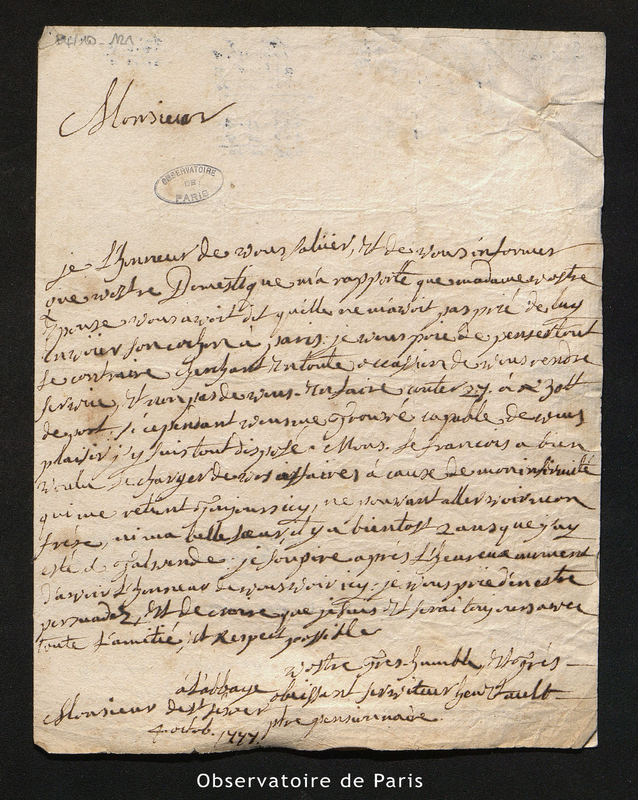 Monsieur
OBSERVATOIRE
DE
PARIS
je L'honneur de vous saluer, et de vous informer
que vostre Domestique m'a rapporté que madame vostre
Epouse vous avoit dit qu'elle ne m'avoit pas prié de luy
envoier son cochon à paris. je vous prie de penser tout
le contraire cherchant en toute occasion de vous rendre
service, et non pas de vous en faire couter 27. à 30ll
de port. si cependant vous me trouvé capable de vous
plaisir j'y suis tout disposé. Mons. le francois a bien
voulu se charger de vos affaires à cause de mon infirmité
qui me retient toujours icy, ne pouvant aller voir mon
frère, ni ma belle soeur, il y a bientost 2 ans que j'ay
esté à je soupire après L'heureux moment
d'avoir L'honneur de vous voir icy. je vous prie d'en estre
persuadez, et de croire que je suis et serai toujours avec
toute L'amitié, et Respect possible
vostre très humble, et très
à L'abbaye obéissant serviteur
Monsieur de st sever ptre pensionnaire.
4 octob.
Observatoire de Paris